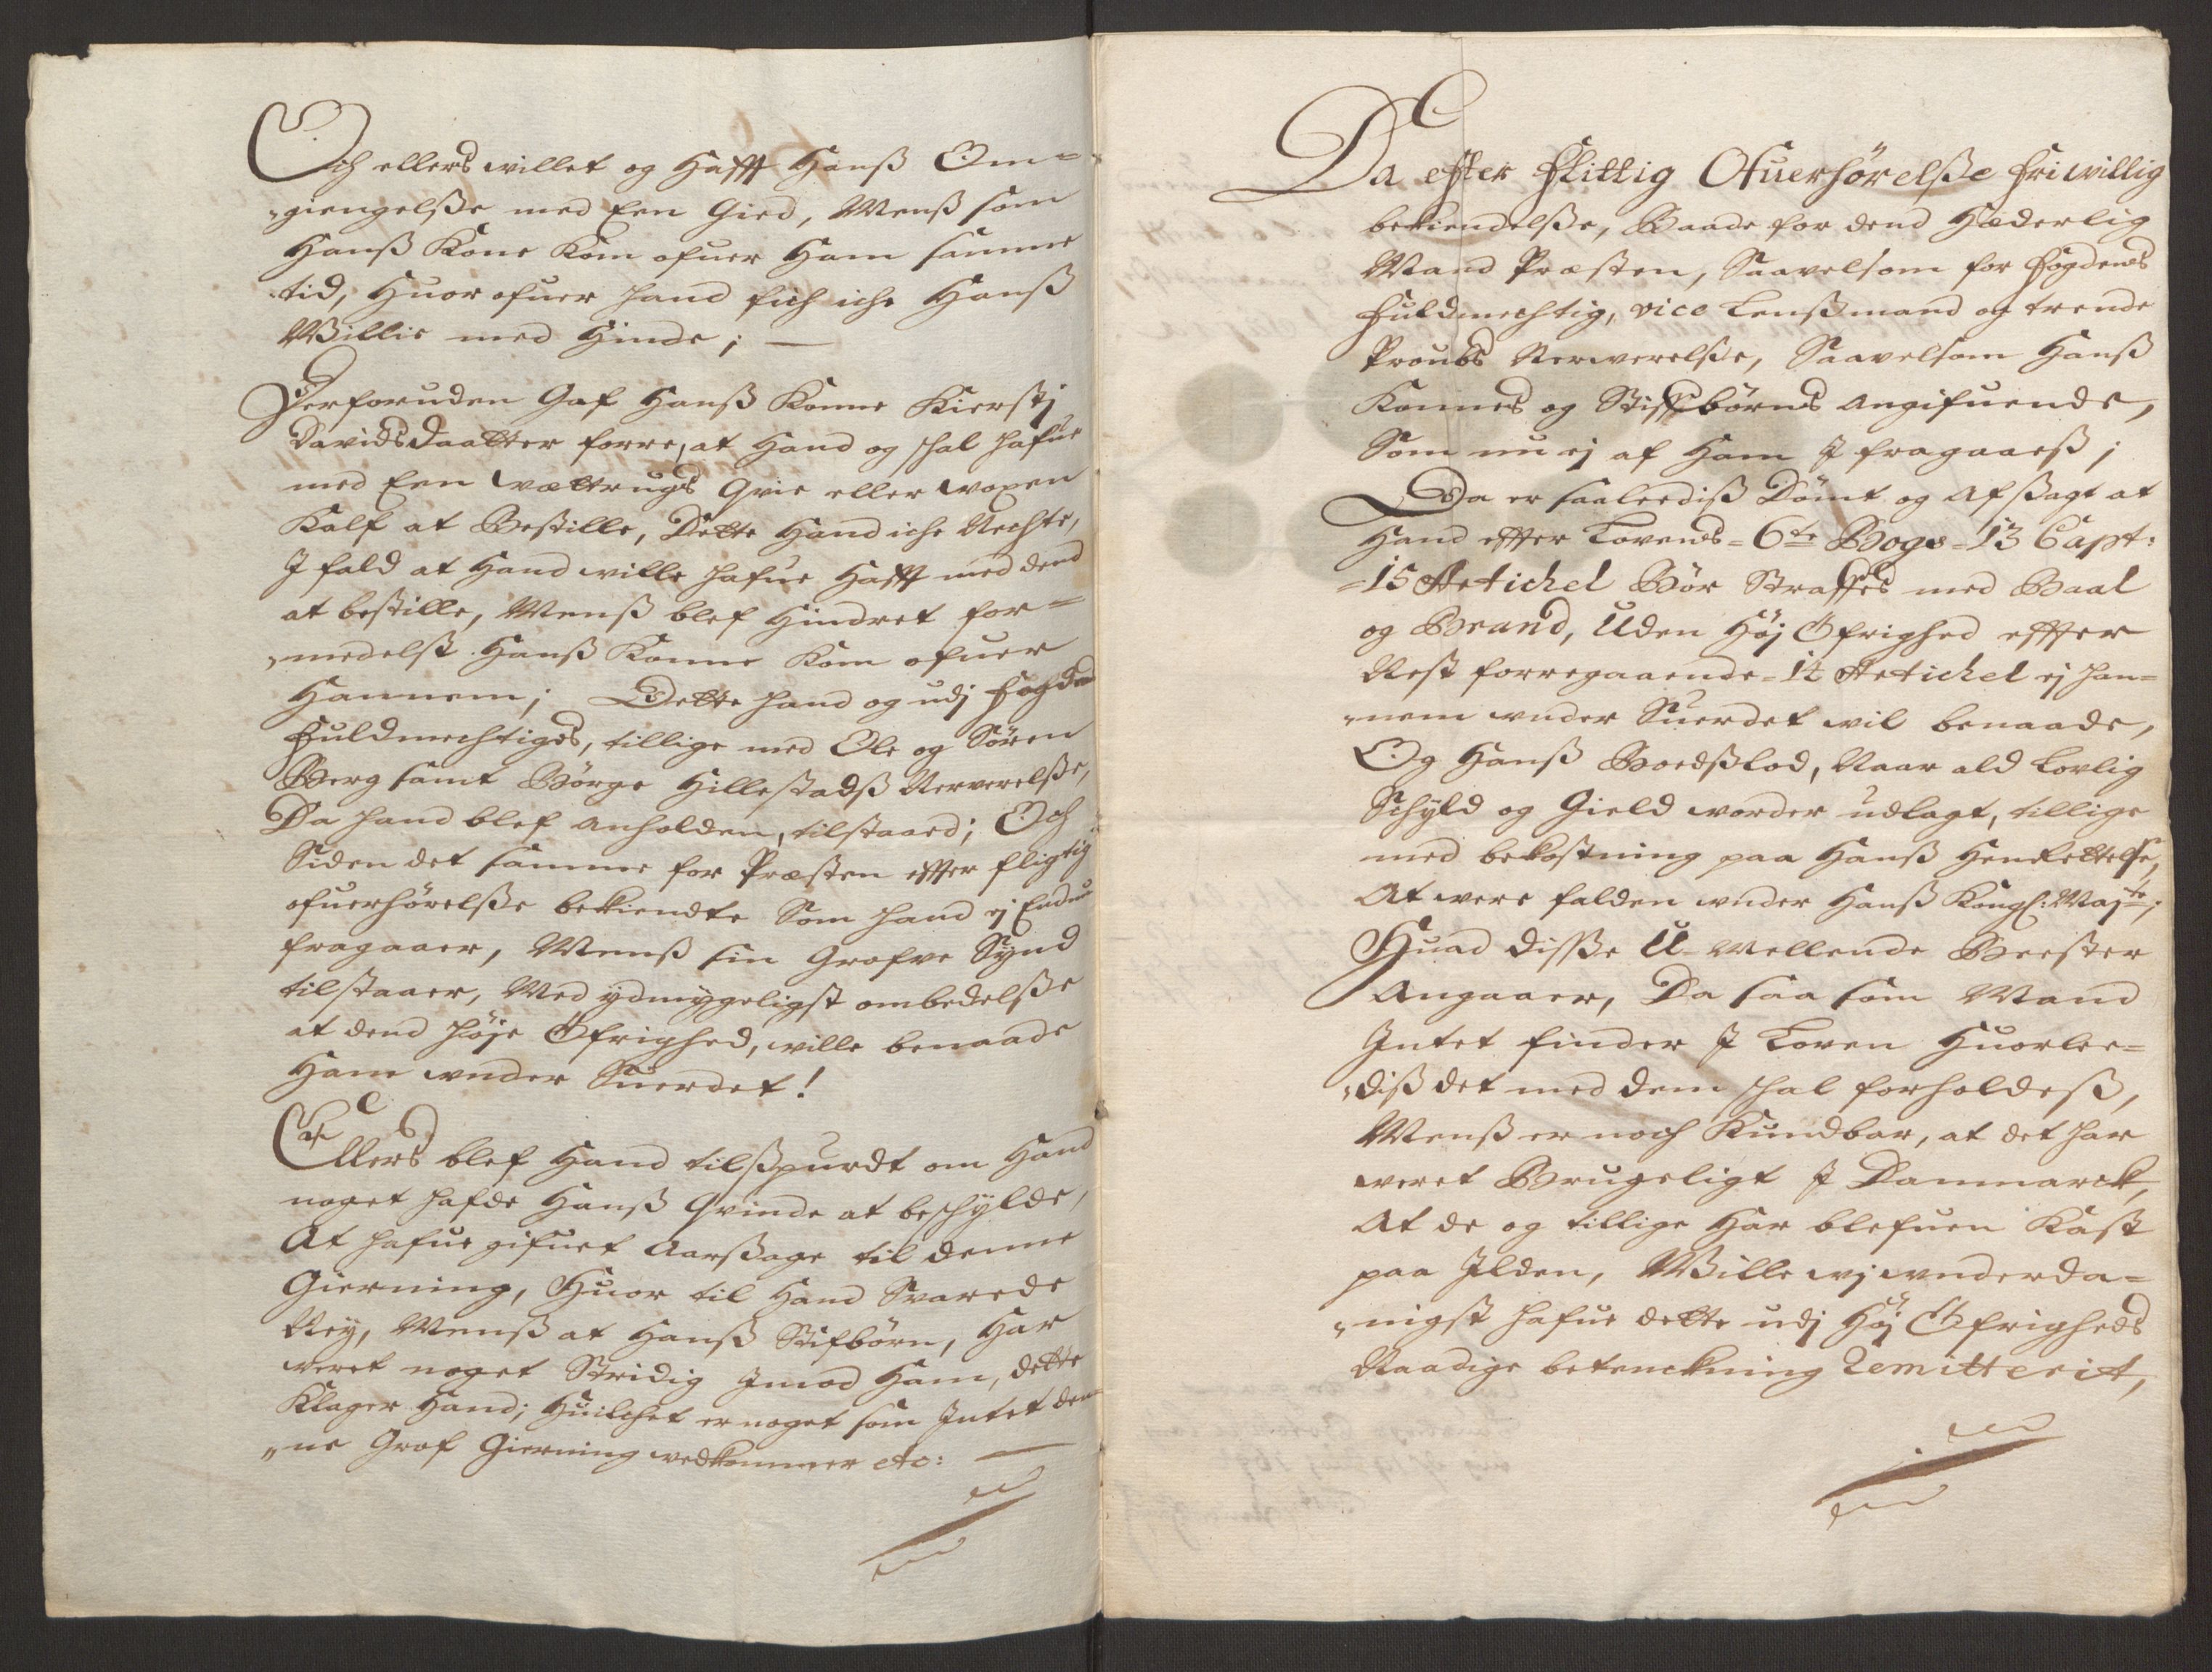 Och ellers willet og Hafft Hanß Om=
giengelße med Een Gied, Menß som
Hanß Kone Kom ofuer Ham samme
tid, Huor ofuer hand fich iche Hanß
Willie med Hinde; —
Herforuden Gaf Hanß Konne Kierstj
Davidsdaatter forre, at Hand og schal hafue
med Een Qvie eller woxen
Kalf at Bestille, Dette Hand iche Nechte,
J fald at Hand wille hafue Hafft med dend
at bestille, Menß blef Hindret for=
medelst Hanß Konne Kom ofuer
Hannem; Dette hand og udj fogdens
Fuldmechtiges, tillige med Ole og Sören
Berg samt Börge Hillestadß Nerverelße,
Da hand blef anholden, tilstaaed; Och
Siden det samme for Præsten effter fligtig
ofuerhörelße bekiendte Som hand ej Endnu
fragaaer, Menß sin Grofve Synd
tilstaaer, Med ydmygeligst ombedelße
at dend höje Öfrighed, wille benaade
Ham wnder Suerdet!
Ellers blef Hand tilßpurdt om Hand
noget hafde Hanß Qvinde at beschylde,
At hafue gifuet Aarßage til denne
Gierning, Huor til Hand Svarede
Ney, Menß at Hanß Stifbörn, Har
weret noget Stridig Jmod Ham, dette
Klager Hand; Huilchet er noget som Jntet den=
ne Grof Gierning wedkommer etc: —
Da efter Flittig Ofuerhörelße friwillig
bekiendelße, Baade for dend Hæderlig
Mand Præsten, Saavelsom for fogdens
fuldmechtig, vice Lenßmand og trende
Nerwerelße, Saavelsom Hanß
Konnes og Stiffbörns angifuende,
Som nu ej af Ham J fragaaeß;
Da er saaleediß Dömt og Afsagt at
Hand effter Lovens = 6te Bogs = 13 Capt:
= 15 Artichel Bör Straffes med Baal
og Brand, Uden Höj Öfrighed effter
Nest forregaaende = 14 Artichel ej han=
nem wnder Suerdet wil benaade,
Og Hanß Boedßlod, Naar ald Lovlig
Schyld og Gield worder udlagt, tillige
med bekostning paa Hanß Henrettelse,
At were falden wnder Hanß Kongl: Majte;
Huad disse U-Mellende Beester
Angaaer, Da saa som Mand
Jntet finder J Loven Huorlee=
diß det med dem schal forholdeß,
Menß er noch Kundbar, at det har
weret Brugeligt J Danmarck,
At de og tillige Har blefuen Kast
paa Jlden, Wille wj wnderda=
nigst hafue dette udj Höj Öfrigheds
Naadige betenckning Remitterit,